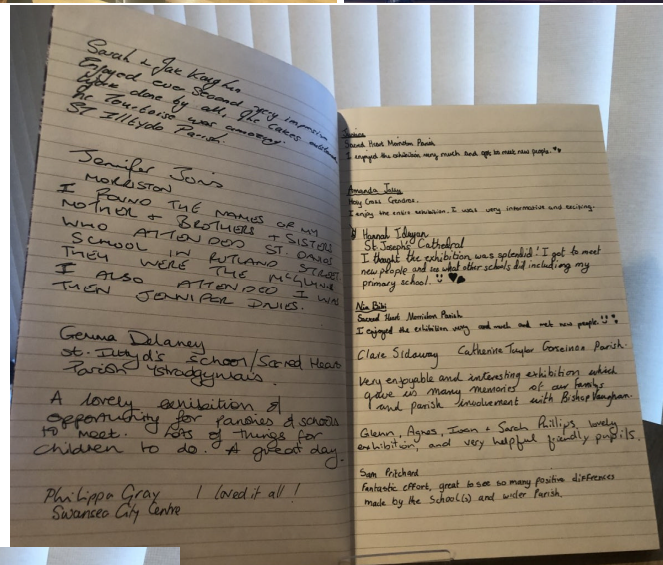 Sarah + Jak
Enjoyed ever second very impressive
Work done by all, the Cakes
the Tourtoise was amazing.
ST Illtyds Parish.
Jennifer
MORRISTON
I FOUND THE NAMES OF MY
MOTHER + BROTHERS + SISTERS
WHO ATTENDED ST. DAVIDS
SCHOOL IN RUTLAND STREET.
THEY WERE THE
I ALSO ATTENDED I WAS
THEN JENNIFER DAVIES.
Gemma Delaney
St. Illtyd's School/Sacred Heart
Parish Ystradgynlais.
A lovely exhibition &
opportunity for parishes & schools
to meet. Lots of things for
children to do. A great day.
Philippa Gray I loved it all!
Swansea City Centre
Sacred Heart Morriston Parish
I enjoyed the exhibition very much and got to meet new people.
Amanda
Holy Cross Gendros.
I enjoy the entire exhibition. I was very informative and exciting.
Hannah
St Josephs Cathedral
I thought the exhibition was splendid! I got to meet
new people and see what other schools did including my
primary school.
Nia Bibi
Sacred Heart Morriston Parish
I enjoyed the exhibition very and much and met new people.
Clare Sidaway Catherine Taylor Gorseinon Parish.
Very enjoyable and interesting exhibition which
gave us many memories of our familys
and parish involvement with Bishop Vaughan.
Glenn, Agnes, Ioan + Sarah Phillips, lovely
exhibition, and very helpful friendly pupils.
Sam Pritchard
Fantastic effort, great to see so many positive differences
made by the School(s) and wider Parish.